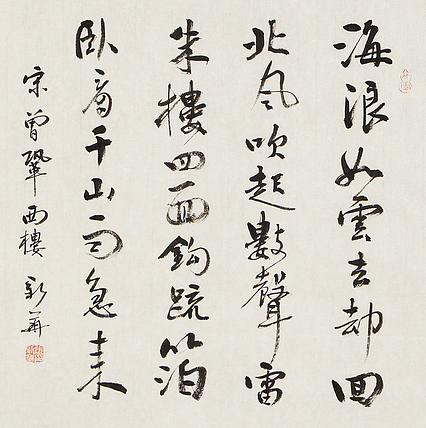 海浪如雲去却回
北風吹起數聲雷
朱樓四面鈎疏箔
卧看千山雨急来
宋曾鞏西樓 新